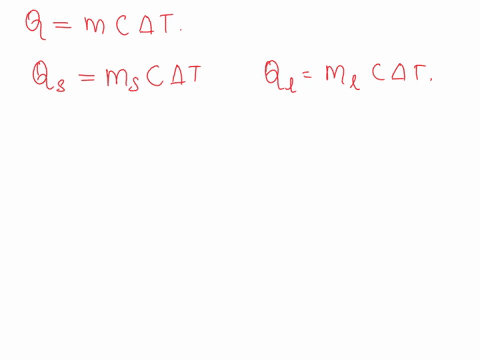 Q = m C Δ T.
Qₛ = mₛ C Δ T Qₗ = mₗ C Δ T.